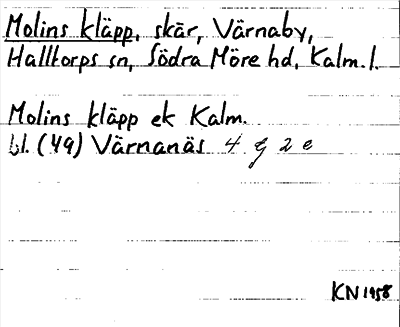 Molins kläpp, skär, Värnaby,
Halltorps sn, Södra Möre hd, Kalm. l.
Molins kläpp ek Kalm.
bl. (49) Värnanäs 4 g 2 e
KN 1958